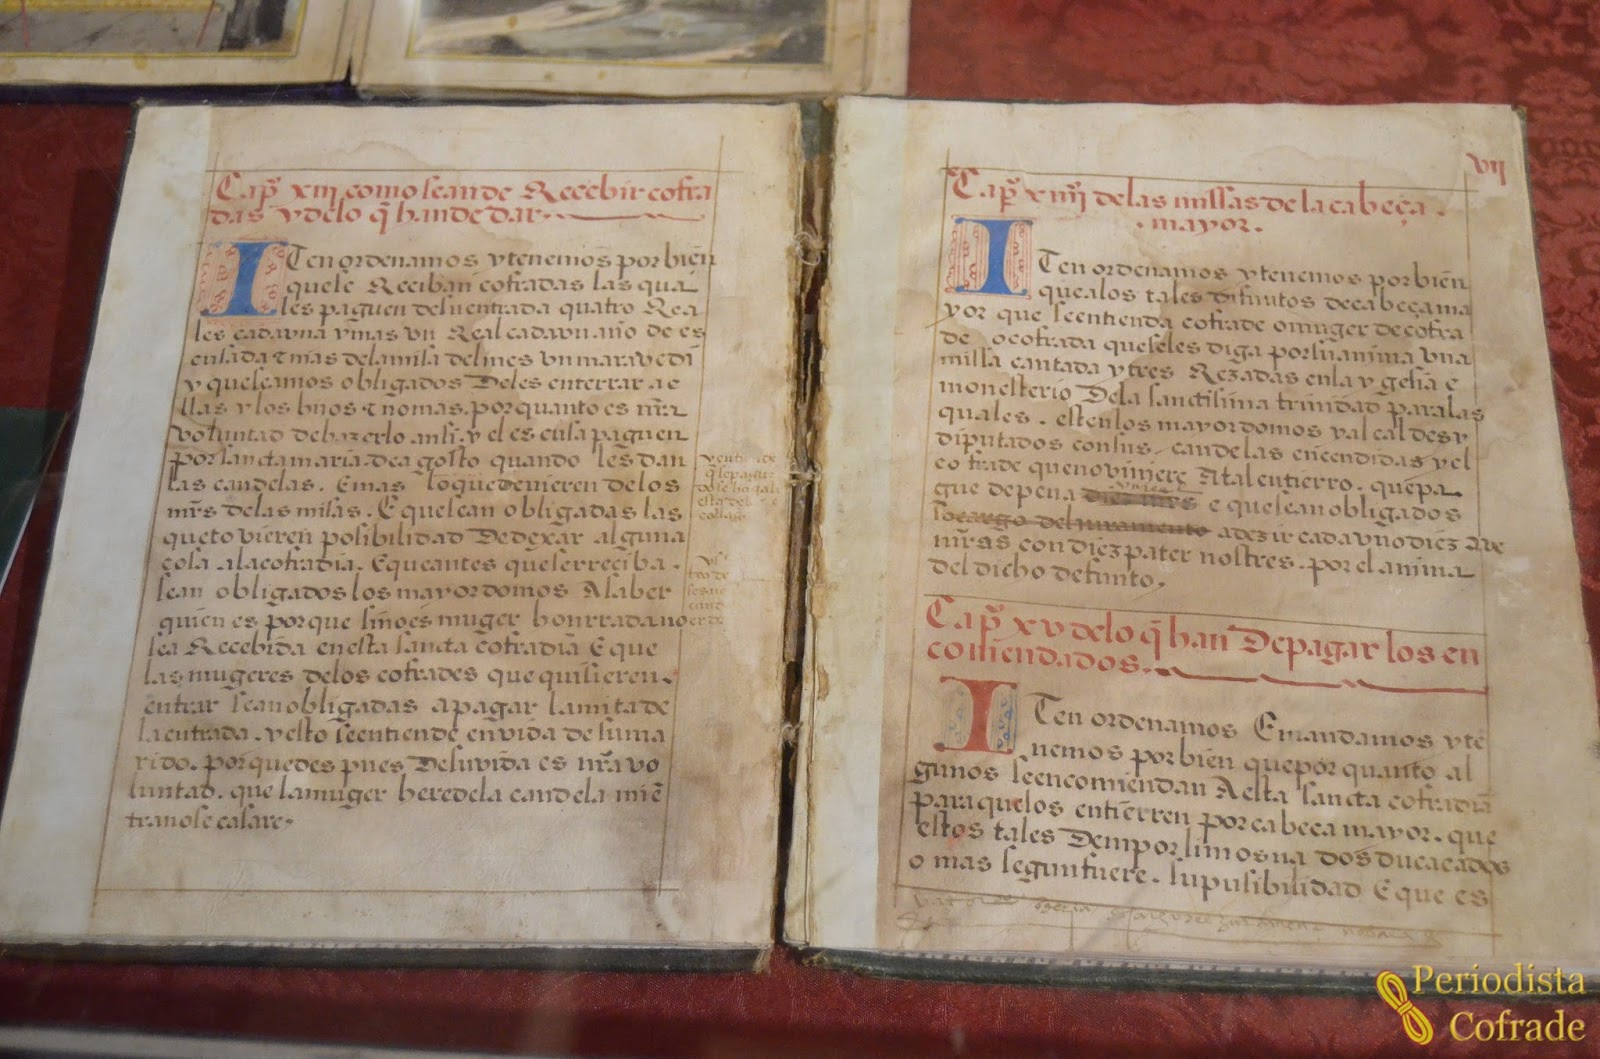 Cap.º xiij como se an de Recebir cofra
das y de lo q̃ han de dar
ITen ordenamos y tenemos por biẽn
que se Reciban cofradas las qua
les paguen de su entrada quatro Rea
les cada vna y mas vn Real cada vn año de es
cusada τ mas de la misa del mes vn maravedi
y que seamos obligados De les enterrar a e
llas y los hijos τ no mas. por quanto es nr̃a
voluntad de hazerlo ansi. y el es cusa paguen
por sancta maria. de agosto quando les dan
las candelas. E mas lo que devieren de los
mr̃s de las misas. E que sean obligadas las
que tovieren posibilidad De dexar alguna
cosa a la cofradia. E que antes que se reciba.
sean obligados los mayordomos A saber
quien es por que si no es muger honrrada no
sea Recebida en esta sancta cofradia E que
las mugeres de los cofrades que quisieren.
entrar sean obligadas a pagar la mitad e
la entrada. y esto se entiende en vida de su ma
rido. por que despues De su vida es nr̃a vo
luntad. que la muger herede la candela miẽ
tra no se casare.
vij
Cap.º xiiij de las missas de la cabeça.
. mayor.
ITen ordenamos y tenemos por biẽn
que a los tales difuntos de cabeça ma
yor que se entienda cofrade o muger de cofra
de o cofrada que se les diga por su anima vna
missa cantada y tres Rezadas en la ygesia e
monesterio De la sanctisima trinidad para las
quales. esten los mayordomos y alcaldes y
diputados con sus. candelas encendidas y el
cofrade que no viniere A tal entierro. que pa
gue de pena diez mr̃s e que sean obligados
so cargo del juramento a dezir cada vno diez Ave
mr̃as con diez pater nostres. por el anima
del dicho defunto.
Cap.º xv de lo q̃ han De pagar los en
comendados.
ITen ordenamos E mandamos y te
nemos por bien que por quanto al
gunos se encomiendan A esta sancta cofradiã
para que los entierren por cabeça mayor. que
estos tales Dem por limosna dos ducacados
o mas segun fuere. su pusibilidad E que es
Periodista
Cofrade